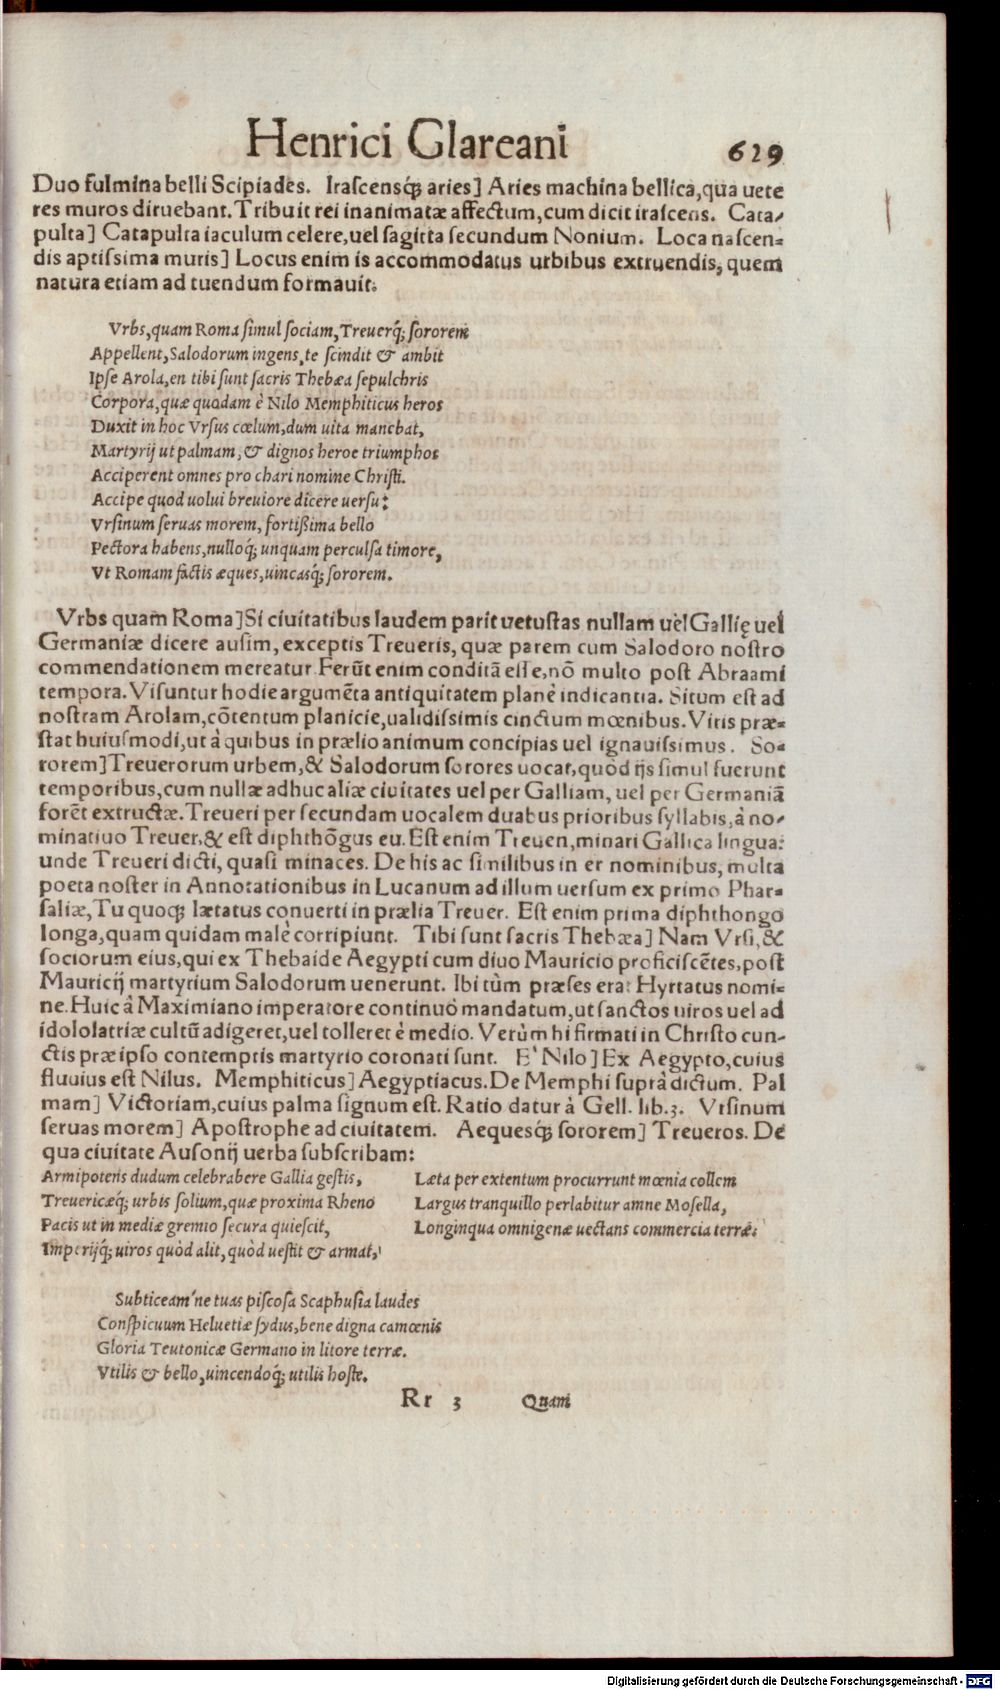 Henrici Glareani 629
Duo fulmina belli Scipiades. Irascensq́ȝ aries] Aries machina bellica,qua uete
res muros diruebant.Tribuit rei inanimatæ affectum,cum dicit irascens. Cata⸗
pulta] Catapulta iaculum celere,uel sagitta secundum Nonium. Loca nascen⸗
dis aptissima muris] Locus enim is accommodatus urbibus extruendis, quem
natura etiam ad tuendum formauit.
Vrbs,quam Roma simul sociam,Treuerq́ȝ sororem
Appellent,Salodorum ingens,te scindit & ambit
Ipse Arola,en tibi sunt sacris Thebæa sepulchris
Corpora,quæ quodam è Nilo Memphiticus heros
Duxit in hoc Vrsus cœlum,dum uita manebat,
Martyrij ut palmam,& dignos heroe triumphos
Acciperent omnes pro chari nomine Christi.
Accipe quod uolui breuiore dicere uersu:
Vrsinum seruas morem, fortißima bello
Pectora habens,nulloq́ȝ unquam perculsa timore,
Vt Romam factis æques,uincasq́ȝ sororem.
Vrbs quam Roma]Si ciuitatibus laudem parit uetustas nullam uel Gallię uel
Germaniæ dicere ausim, exceptis Treueris, quæ parem cum Salodoro nostro
commendationem mereatur.Ferũt enim conditã esse,nõ multo post Abraami
tempora.Visuntur hodie argumẽta antiquitatem planè indicantia. Situm est ad
nostram Arolam,cõtentum planicie,ualidissimis cinctum mœnibus.Viris præ⸗
stat huiusmodi,ut à quibus in prælio animum concipias uel ignauissimus. So⸗
rorem]Treuerorum urbem,& Salodorum sorores uocat,quòd ijs simul fuerunt
temporibus,cum nullæ adhuc aliæ ciuitates uel per Galliam, uel per Germaniã
forẽt extructæ.Treueri per secundam uocalem duabus prioribus syllabis,à no⸗
minatiuo Treuer,& est diphthõgus eu.Est enim Treuen,minari Gallica lingua:
unde Treueri dicti, quasi minaces. De his ac similibus in er nominibus, multa
poeta noster in Annotationibus in Lucanum ad illum uersum ex primo Phar⸗
saliæ,Tu quoqȝ lætatus conuerti in prælia Treuer. Est enim prima diphthongo
longa,quam quidam malè corripiunt. Tibi sunt sacris Thebæa] Nam Vrsi,&
sociorum eius,qui ex Thebaide Aegypti cum diuo Mauricio proficiscẽtes,post
Mauricij martyrium Salodorum uenerunt. Ibi tùm præses erat Hyrtatus nomi⸗
ne.Huic à Maximiano imperatore continuò mandatum,ut sanctos uiros uel ad
idololatriæ cultũ adigeret,uel tolleret è medio. Verùm hi firmati in Christo cun⸗
ctis præ ipso contemptis martyrio coronati sunt. E' Nilo] Ex Aegypto,cuius
fluuius est Nilus. Memphiticus] Aegyptiacus.De Memphi suprà dictum. Pal
mam] Victoriam,cuius palma signum est. Ratio datur à Gell. lib.3. Vrsinum
seruas morem] Apostrophe ad ciuitatem. Aequesq́ȝ sororem] Treueros. De
qua ciuitate Ausonij uerba subscribam:
Armipotens dudum celebrabere Gallia gestis,
Treuericæq́ȝ urbis solium,quæ proxima Rheno
Pacis ut in mediæ gremio secura quiescit,
Imperijq́ȝ uiros quòd alit,quòd uestit & armat,
Læta per extentum procurrunt mœnia collem
Largus tranquillo perlabitur amne Mosella,
Longinqua omnigenæ uectans commercia terræ.
Subticeam'ne tuas piscosa Scaphusia laudes
Conspicuum Heluetiæ sydus,bene digna camœnis
Gloria Teutonicæ Germano in litore terræ.
Vtilis & bello,uincendoq́ȝ utilis hoste.
Rr 3 Quam
Digitalisierung gefördert durch die Deutsche Forschungsgemeinschaft - DFG